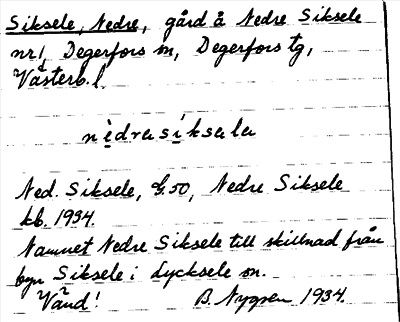 Siksele, Nedre, gård å Nedre Siksele
nr 1, Degerfors sn, Degerfors tg,
Västerb. l.
nedrasiksela
Ned. Siksele, G. 50, Nedre Siksele
kb. 1934.
Namnet Nedre Siksele till skillnad från
byn Siksele i Lycksele sn.
Vänd! B. Nygren 1934.